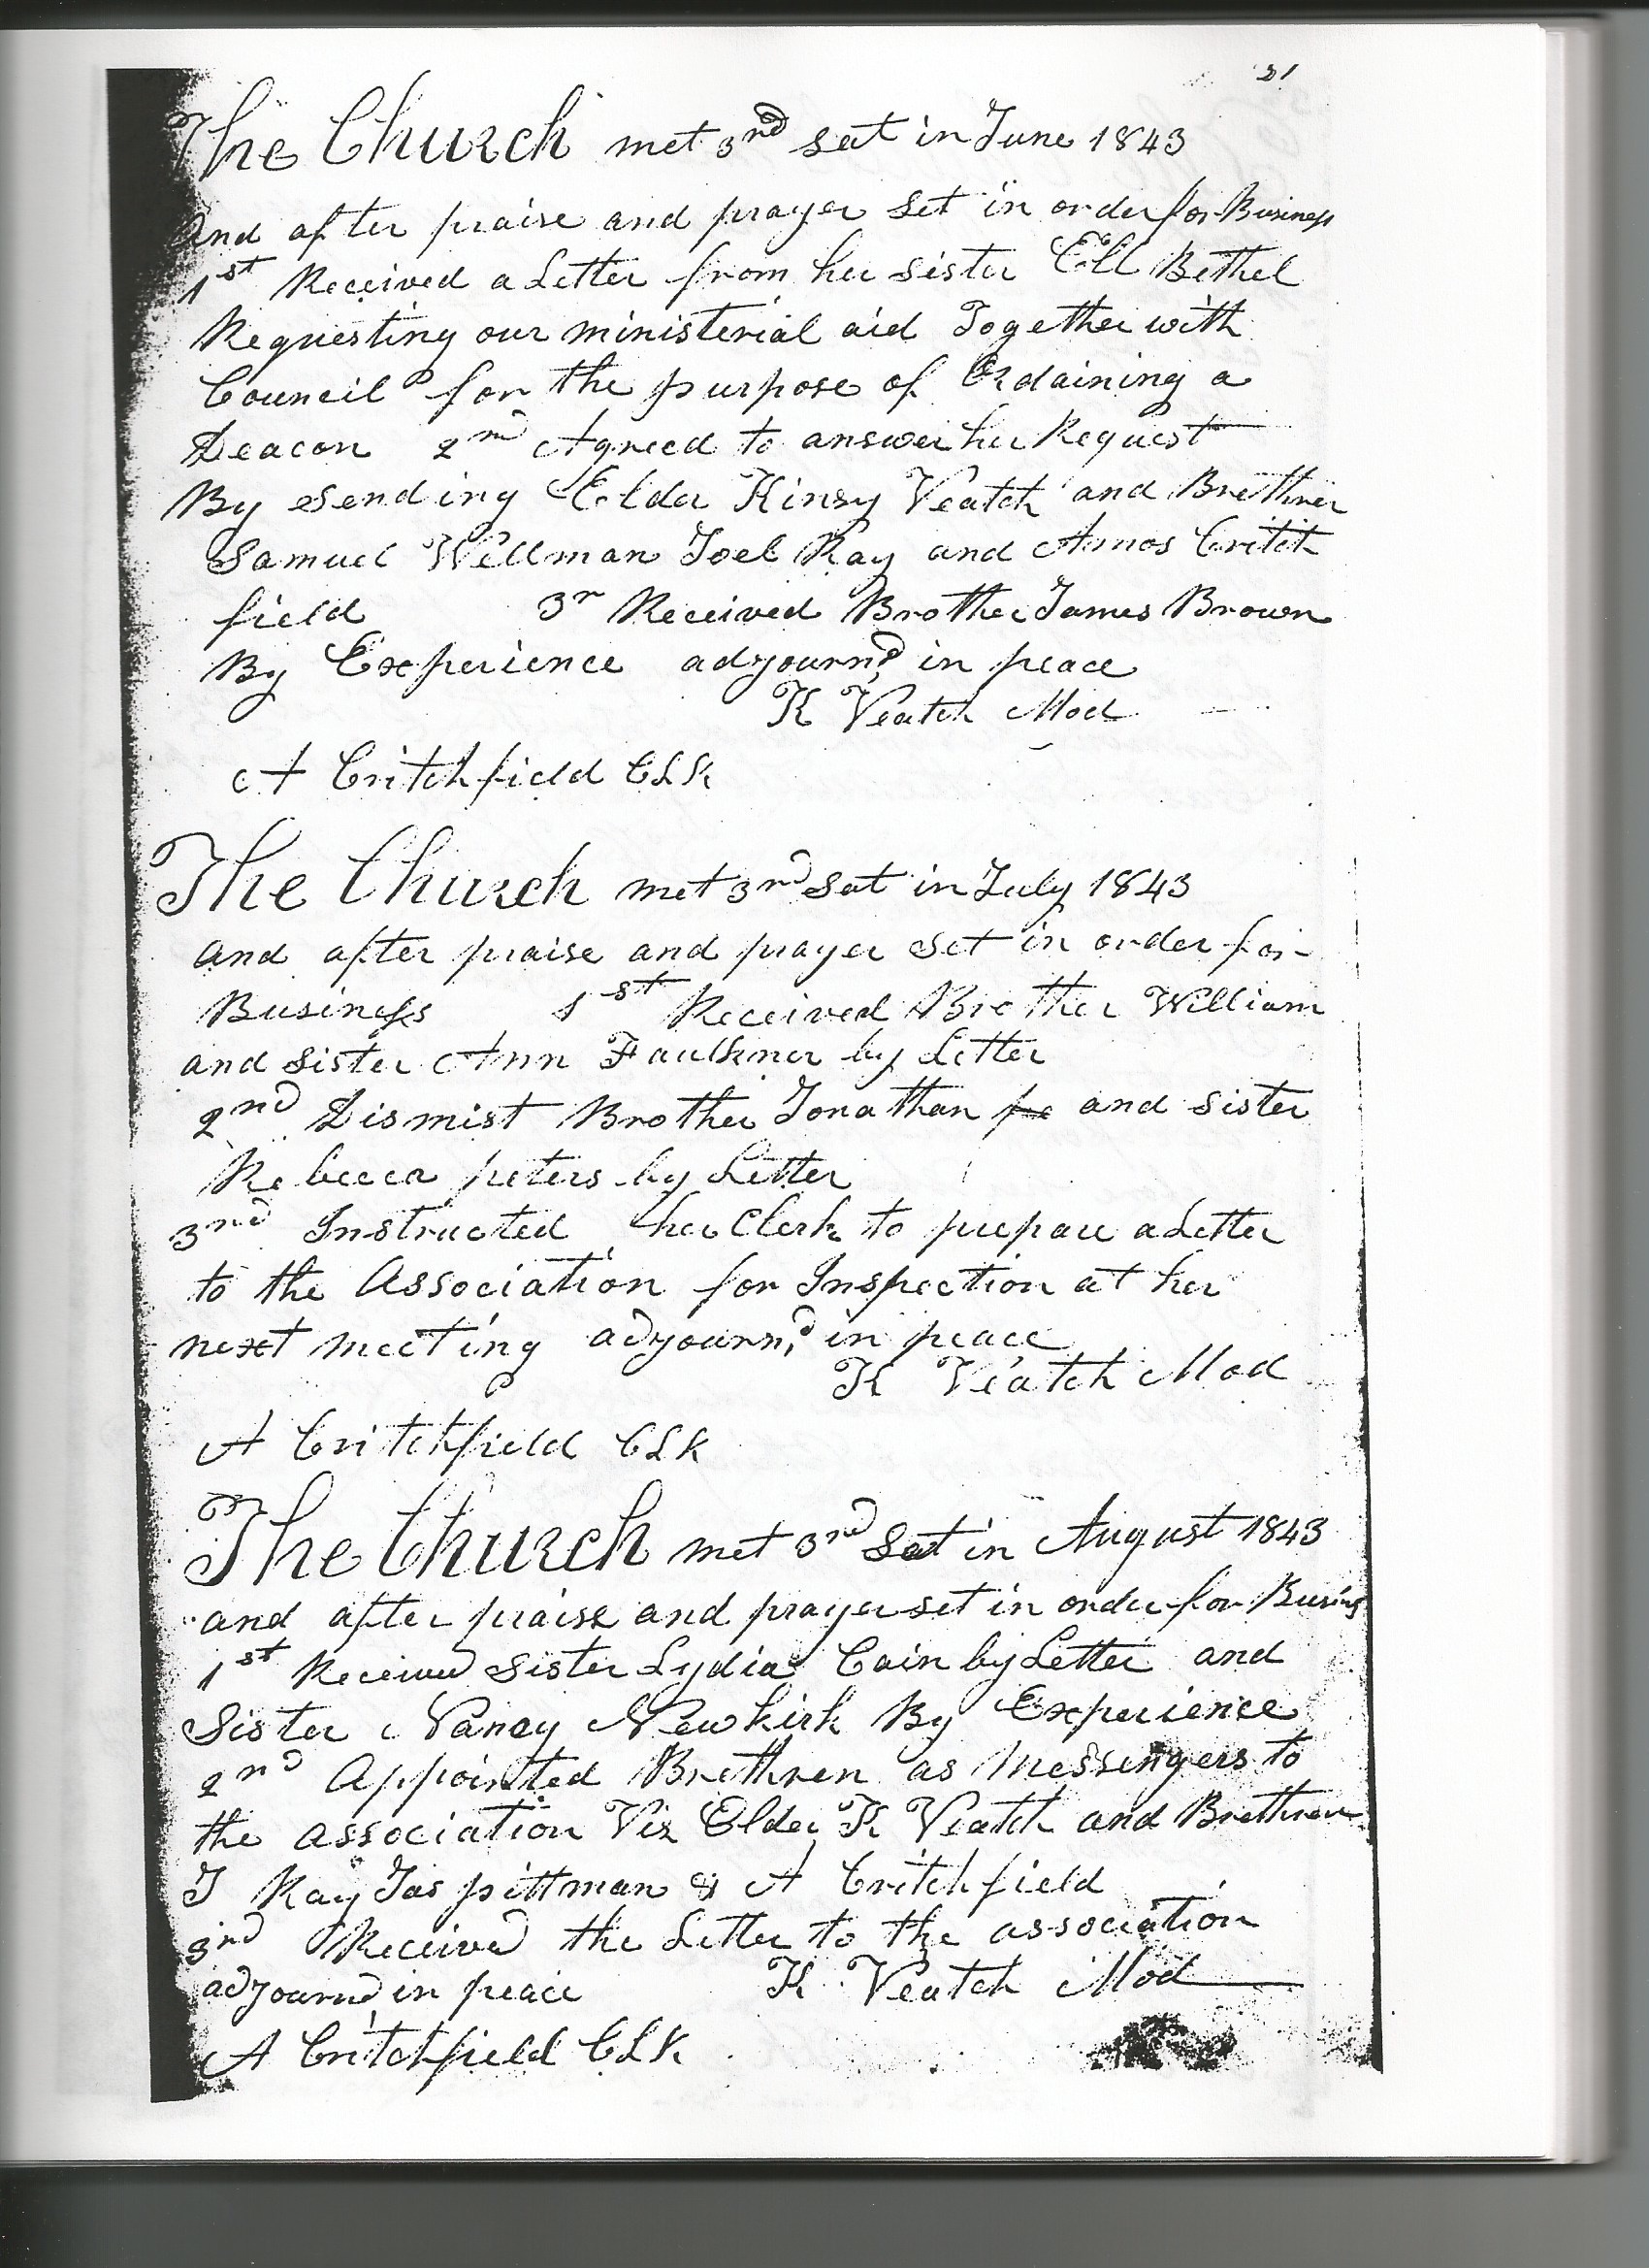 21
The Church met 3rd Sat in June 1843
And after praise and prayer Set in order for Business
1st Received a Letter from her sister Ell Bethel
Requesting our ministerial aid Together with
Council for the purpose of Ordaining a
Deacon 2nd Agreed to answer her Request
By Sending Elder Kinsy Veatch and Brethren
Samuel Wellman Joel Ray and Amos Critch
field 3r Received Brother James Brown
By Experience adjournd in peace
K Veatch Mod
A Critchfield CLK
The Church met 3rd Sat in July 1843
and after praise and prayer Set in order for
Business 1st Received Brother William
and Sister Ann Faulkner by Letter
2nd Dismist Brother Jonathan pe and Sister
Rebecca peters by Letter
3rd Instructed her Clerk to prepare a Letter
to the Association for Inspection at her
next meeting adjournd in peace
K Veatch Mod
A Critchfield CLK
The Church met 3rd Sat in August 1843
and after praise and prayer set in order for Busins
1st Received Sister Lydia Cain by Letter and
Sister Nancy Newkirk By Experience
2nd Appointed Brethren as Messengers to
the association Viz Elder K Veatch and Brethren
J Ray Jas pittman & A Critchfield
3rd Received the Letter to the association
adjournd in peace K Veatch Mod
A Critchfield CLK